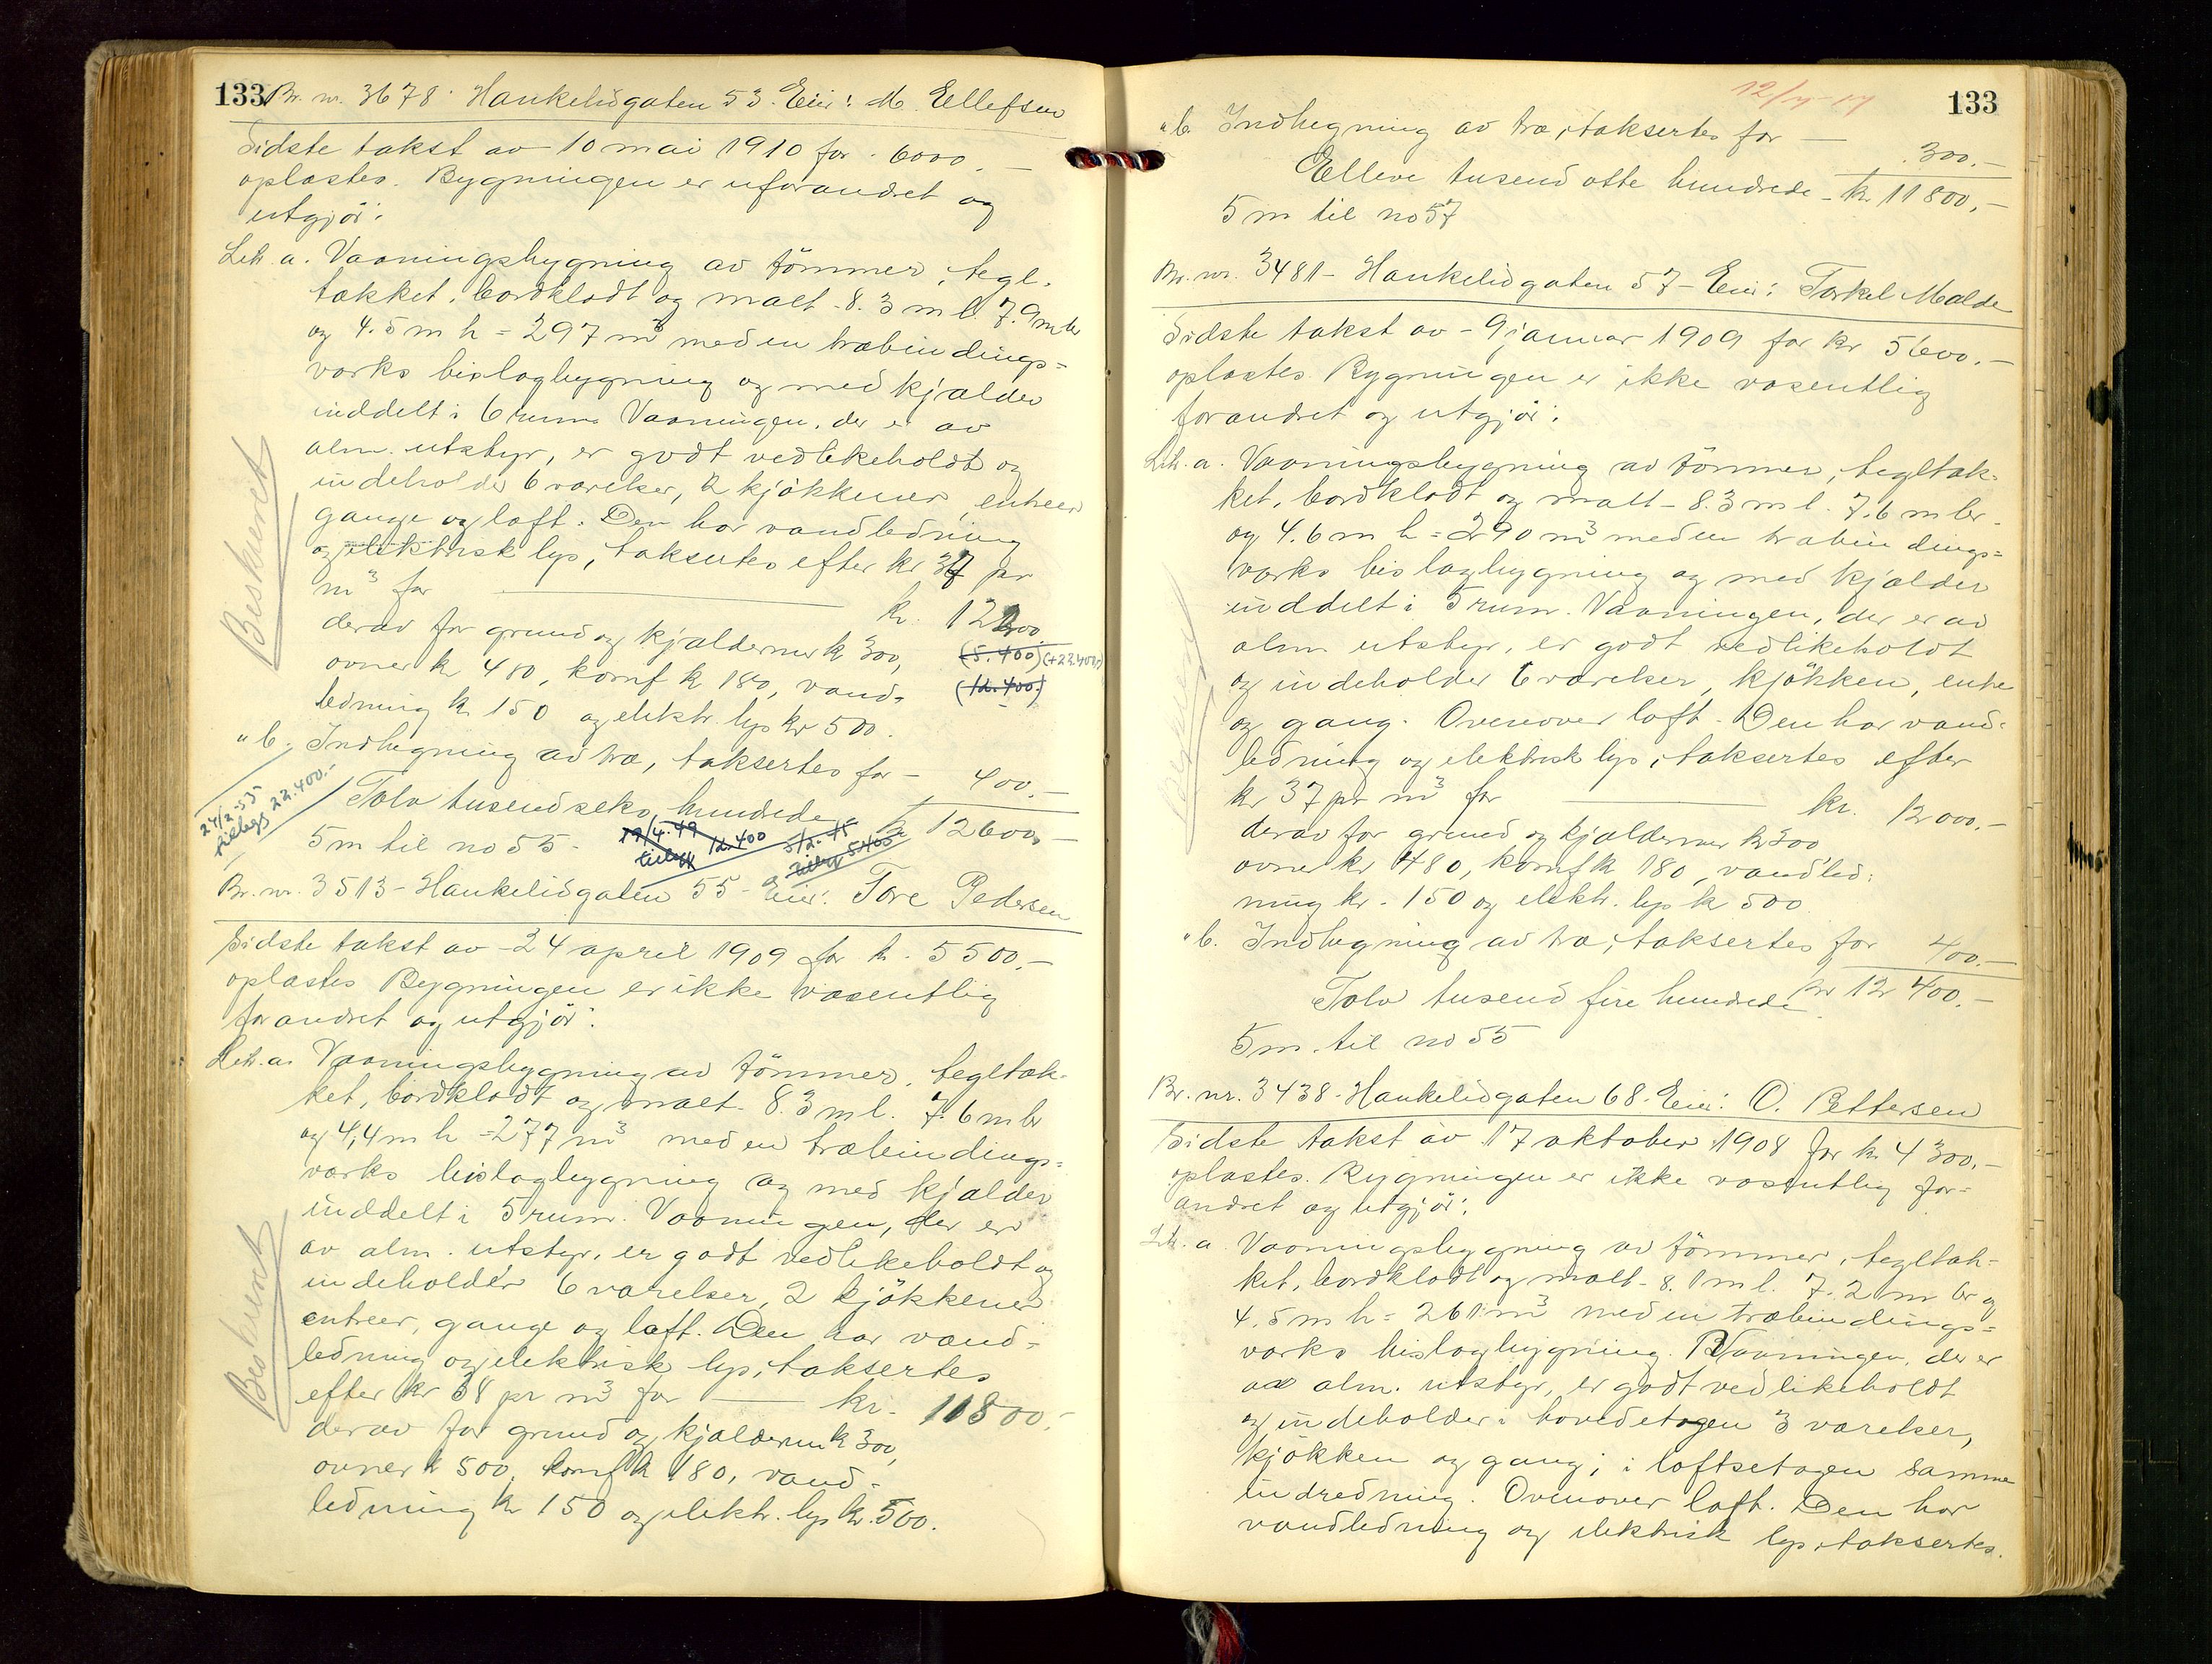 133 Br. nr. 3678 Haukelidgaten 53. Eier: M. Ellefsen
Sidste takst av 10 mai 1910 for 6000.-
oplæstes. Bygningen er uforandret og
utgjör:
Litr. a. Vaaningsbygning av tömmer, tegl-
tækket, bordklædt og malt - 8.3 m l. 7.9 m br
og 4.5 m h = 297 m³ med en træbindings-
verks bislagbygning og med kjælder
inddelt i 6 rum. Vaaningen, der er av
alm. utstyr, er godt vedlikeholdt og
indeholder 6 værelser, 2 kjökkener, entreer
gange og loft. Den har vandledning
og elektrisk lys, taksertes efter kr 37 pr
m³ for kr. 12200
derav for grund og kjældermur kr 300,
(5.400) (+22.400,-)
ovner kr 480, komf kr 180, vand-
(12.400.-)
ledning kr 150 og elektr. lys kr 500.
" b. Indhegning av træ, taksertes for - 400.-
Tolv tusend seks hundrede kr 12600,-
24/2-53
tillegg 22.400.-
5 m til no 55 -
19/4.49 tillegg 12.400
5/2-45 tillegg 5.400
Br. nr. 3513 - Haukelidgaten 55 - Eier: Tore Pedersen
Sidste takst av - 24 april 1909 for kr. 5500.-
oplæstes Bygningen er ikke væsentlig
forandret og utgjör:
Litr. a. Vaaningsbygning av tömmer, tegltæk-
ket, bordklædt og malt - 8.3 m l. 7.6 m br
og 4,4 m h = 277 m³ med en træbindings-
verks bislagbygning og med kjælder
inddelt i 5 rum. Vaaningen, der er
av alm. utstyr, er godt vedlikeholdt og
indeholder 6 værelser, 2 kjökkener
entreer, gange og loft. Den har vand-
ledning og elektrisk lys, taksertes
efter kr 38 pr m³ for kr. 11800.-
derav for grund og kjældermur kr 300,
ovner kr 500, komf kr 180, vand-
ledning kr 150 og elektr. lys kr. 500.
Beskrevet
Beskrevet
133
" b. Indhegning av træ, taksertes for - 300.-
Elleve tusend otte hundrede - kr. 11800,-
5 m til no 57
Br. nr. 3481 - Haukelidgaten 57 - Eier: Torkel Malde
Sidste takst av - 9 januar 1909 for kr 5600.-
oplæstes Bygningen er ikke væsentlig
forandret og utgjör:
Litr. a. Vaaningsbygning av tömmer, tegltæk-
ket, bordklædt og malt - 8.3 m l. 7.6 m br.
og 4.6 m h = 290 m³ med en træbindings-
verks bislagbygning og med kjælder
inddelt i 5 rum. Vaaningen, der er av
alm utstyr, er godt vedlikeholdt
og indeholder 6 værelser, kjökken, entre
og gang. Ovenover loft. Den har vand-
ledning og elektrisk lys, taksertes efter
kr 37 pr m³ for kr. 12000.-
derav for grund og kjældermur kr 300
ovner kr 480, komf kr 180, vandled-
ning kr. 150 og elektr. lys kr 500
" b. Indhegning av træ, taksertes for 400.-
Tolv tusend fire hundrede kr 12400.-
5 m. til no 55
Br. nr. 3438 - Haukelidgaten 68. Eier: O. Pettersen
Sidste takst av 17 oktober 1908 for kr. 4300.-
oplæstes. Bygningen er ikke væsentlig for-
andret og utgjör:
Litr. a Vaaningsbygning av tömmer, tegltæk-
ket, bordklædt og malt - 8.1 m l. 7.2 m br og
4.5 m h = 261 m³ med en træbindings-
verks bislagbygning. Vaaningen, der er
av alm. utstyr, er godt vedlikeholdt
og indeholder i hovedetagen 3 værelser,
kjökken og gang; i loftsetagen samme
indredning. Ovenover loft. Den har
vandledning og elektrisk lys, taksertes.